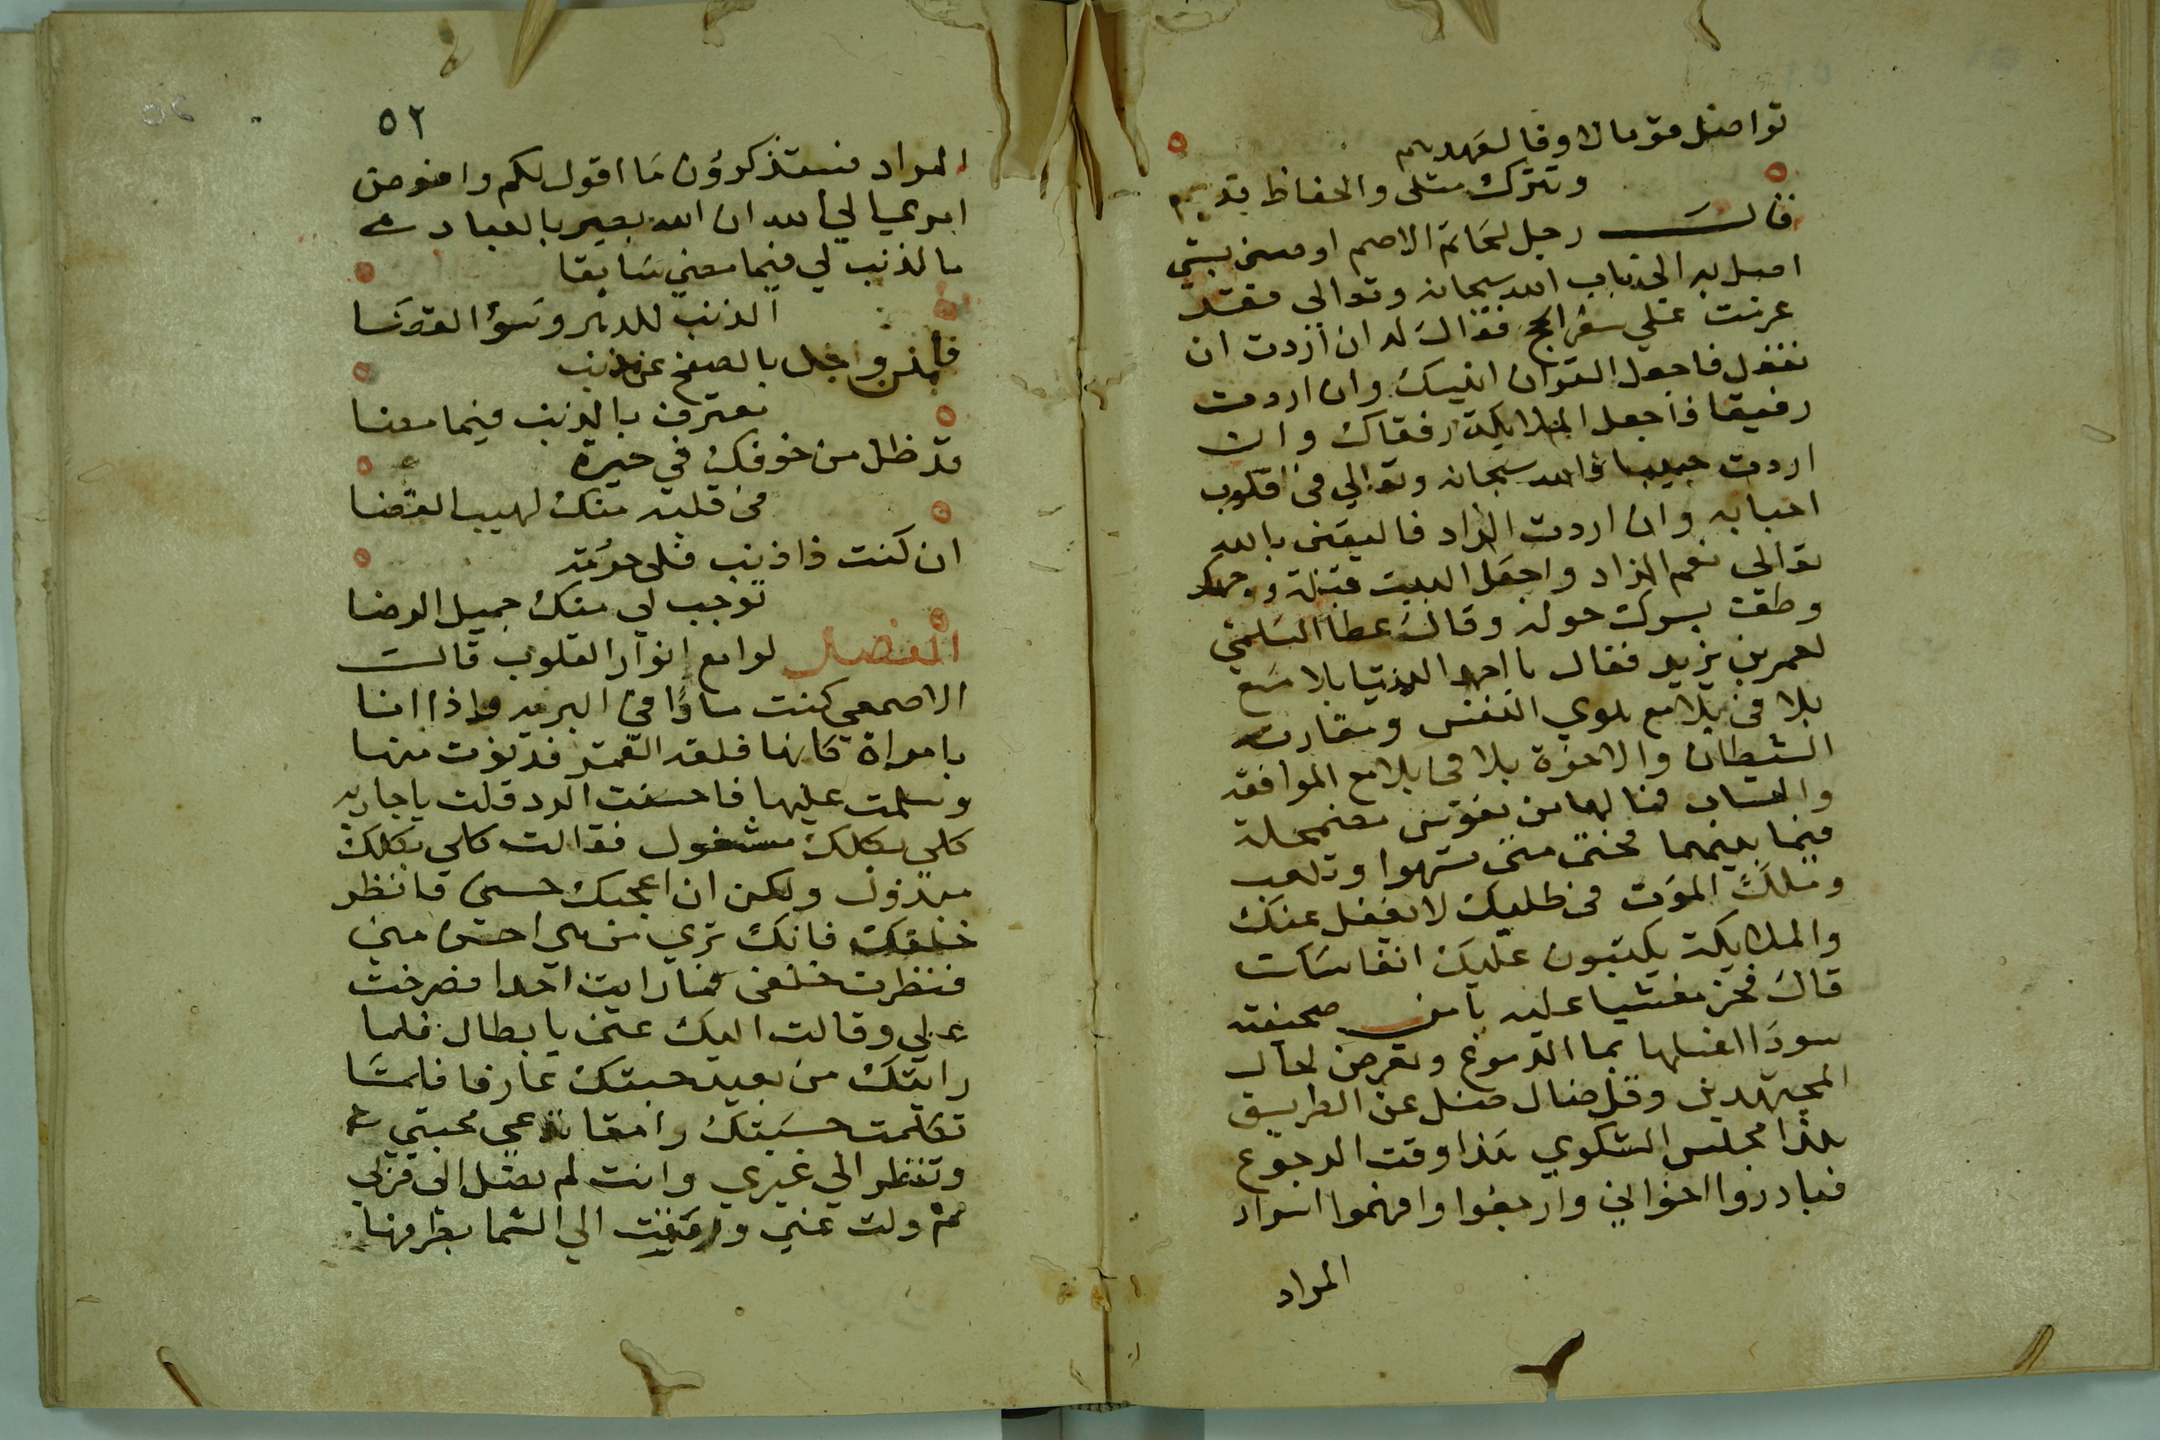 تواصل قوما لا وفا لعهدهم
وتترك مثلي والحفاظ قديم
قال رجل لحاتم الاصم اوصني بشي
اصل به الى باب الله سبحانه وتعالى فقد
عزمت علي سفر الحج فقال له ان اردت ان
فاجعل القران انيسك وان اردت
رفيقا فاجعل الملايكة رفقاك وان
اردت حبيبا فالله سبحانه وتعالي في قلوب
احبابه وان اردت الزاد فاليقين بالله
تعالى نعم الزاد واجعل البيت قبلة وجهك
وطف بسرك حوله وقال عطا السلمي
لعمر بن يزيد فقال يا اخي الدنيا بلا مع
بلا في بلا مع هوي النفس ومقارنة
الشيطان والاخرة بلا في بلا مع الموافقة
والحساب فيا لها من نفوس مضمحلة
فيما بينهما فحتى متى تسهوا وتلعب
وملك الموت في طلبك لا يغفل عنك
والملايكة يكتبون عليك انفاسك
قال فخر مغشيا عليه يا من صحيفته
سودا اغسلها بما الدموع وتعرض لحال
المجتهدين وقل ضال ضل عن الطريق
هذا مجلس الشكوي هذا وقت الرجوع
فبادروا اخواني وارجعوا وافهموا اسرار
المراد
٥٢
المراد فستذكرون ما اقول لكم وافوض
امري الي الله ان الله بصير بالعباد
ما لذنب لي فيما مضي سابقا
الذنب للدهر وسؤ القضا
فامنن وجد بالصفح عن مذنب
معترف بالذنب فيما مضا
قد ظل من خوفك في حيرة
في قلبه منك لهيب الغضا
ان كنت ذا ذنب فلي حرمة
توجب لي منك جميل الرضا
الفصل لوامع انوار القلوب قال
الاصمعي كنت مارا في البرية واذا انا
بامراة كانها فلقة القمر فدنوت منها
وسلمت عليها فاحسنت الرد قلت يا جارية
كلي بكلك مشغول فقالت كلي بكلك
مبذول ولكن ان اعجبك حسني فانظر
خلفك فانك تري من هي احسن مني
فنظرت خلفي فما رايت احدا فصرخت
علي وقالت اليك عني يا بطال فلما
رايتك من بعيد حسبتك عارفا فلما
تكلمت حسبتك وامقا تدعي محبتي
وتنظر الي غيري وانت لم تصل الى قربي
ثم ولت عني ورمقت الي السما بطرفها